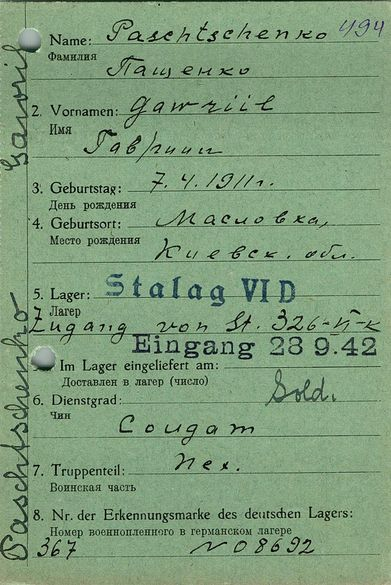 494
Name: Paschtschenko
Фамилия
Пащенко
2. Vornamen: Gawriil
Имя
Гавриил
3. Geburtstag: 7.4.1911г.
День рождения
4. Geburtsort: Масловка,
Место рождения
Киевск. обл.
5. Lager: Stalag VI D
Лагер
Zugang von St. 326-VI-K
Eingang 28 9.42
Im Lager eingeliefert am:
Доставлен в лагер (число)
6. Dienstgrad: Sold.
Чин
Солдат
7. Truppenteil: Пех.
Воинская часть
8. Nr. der Erkennungsmarke des deutschen Lagers:
Номер военнопленного в германском лагере
367 No 8692
Paschtschenko Gawriil